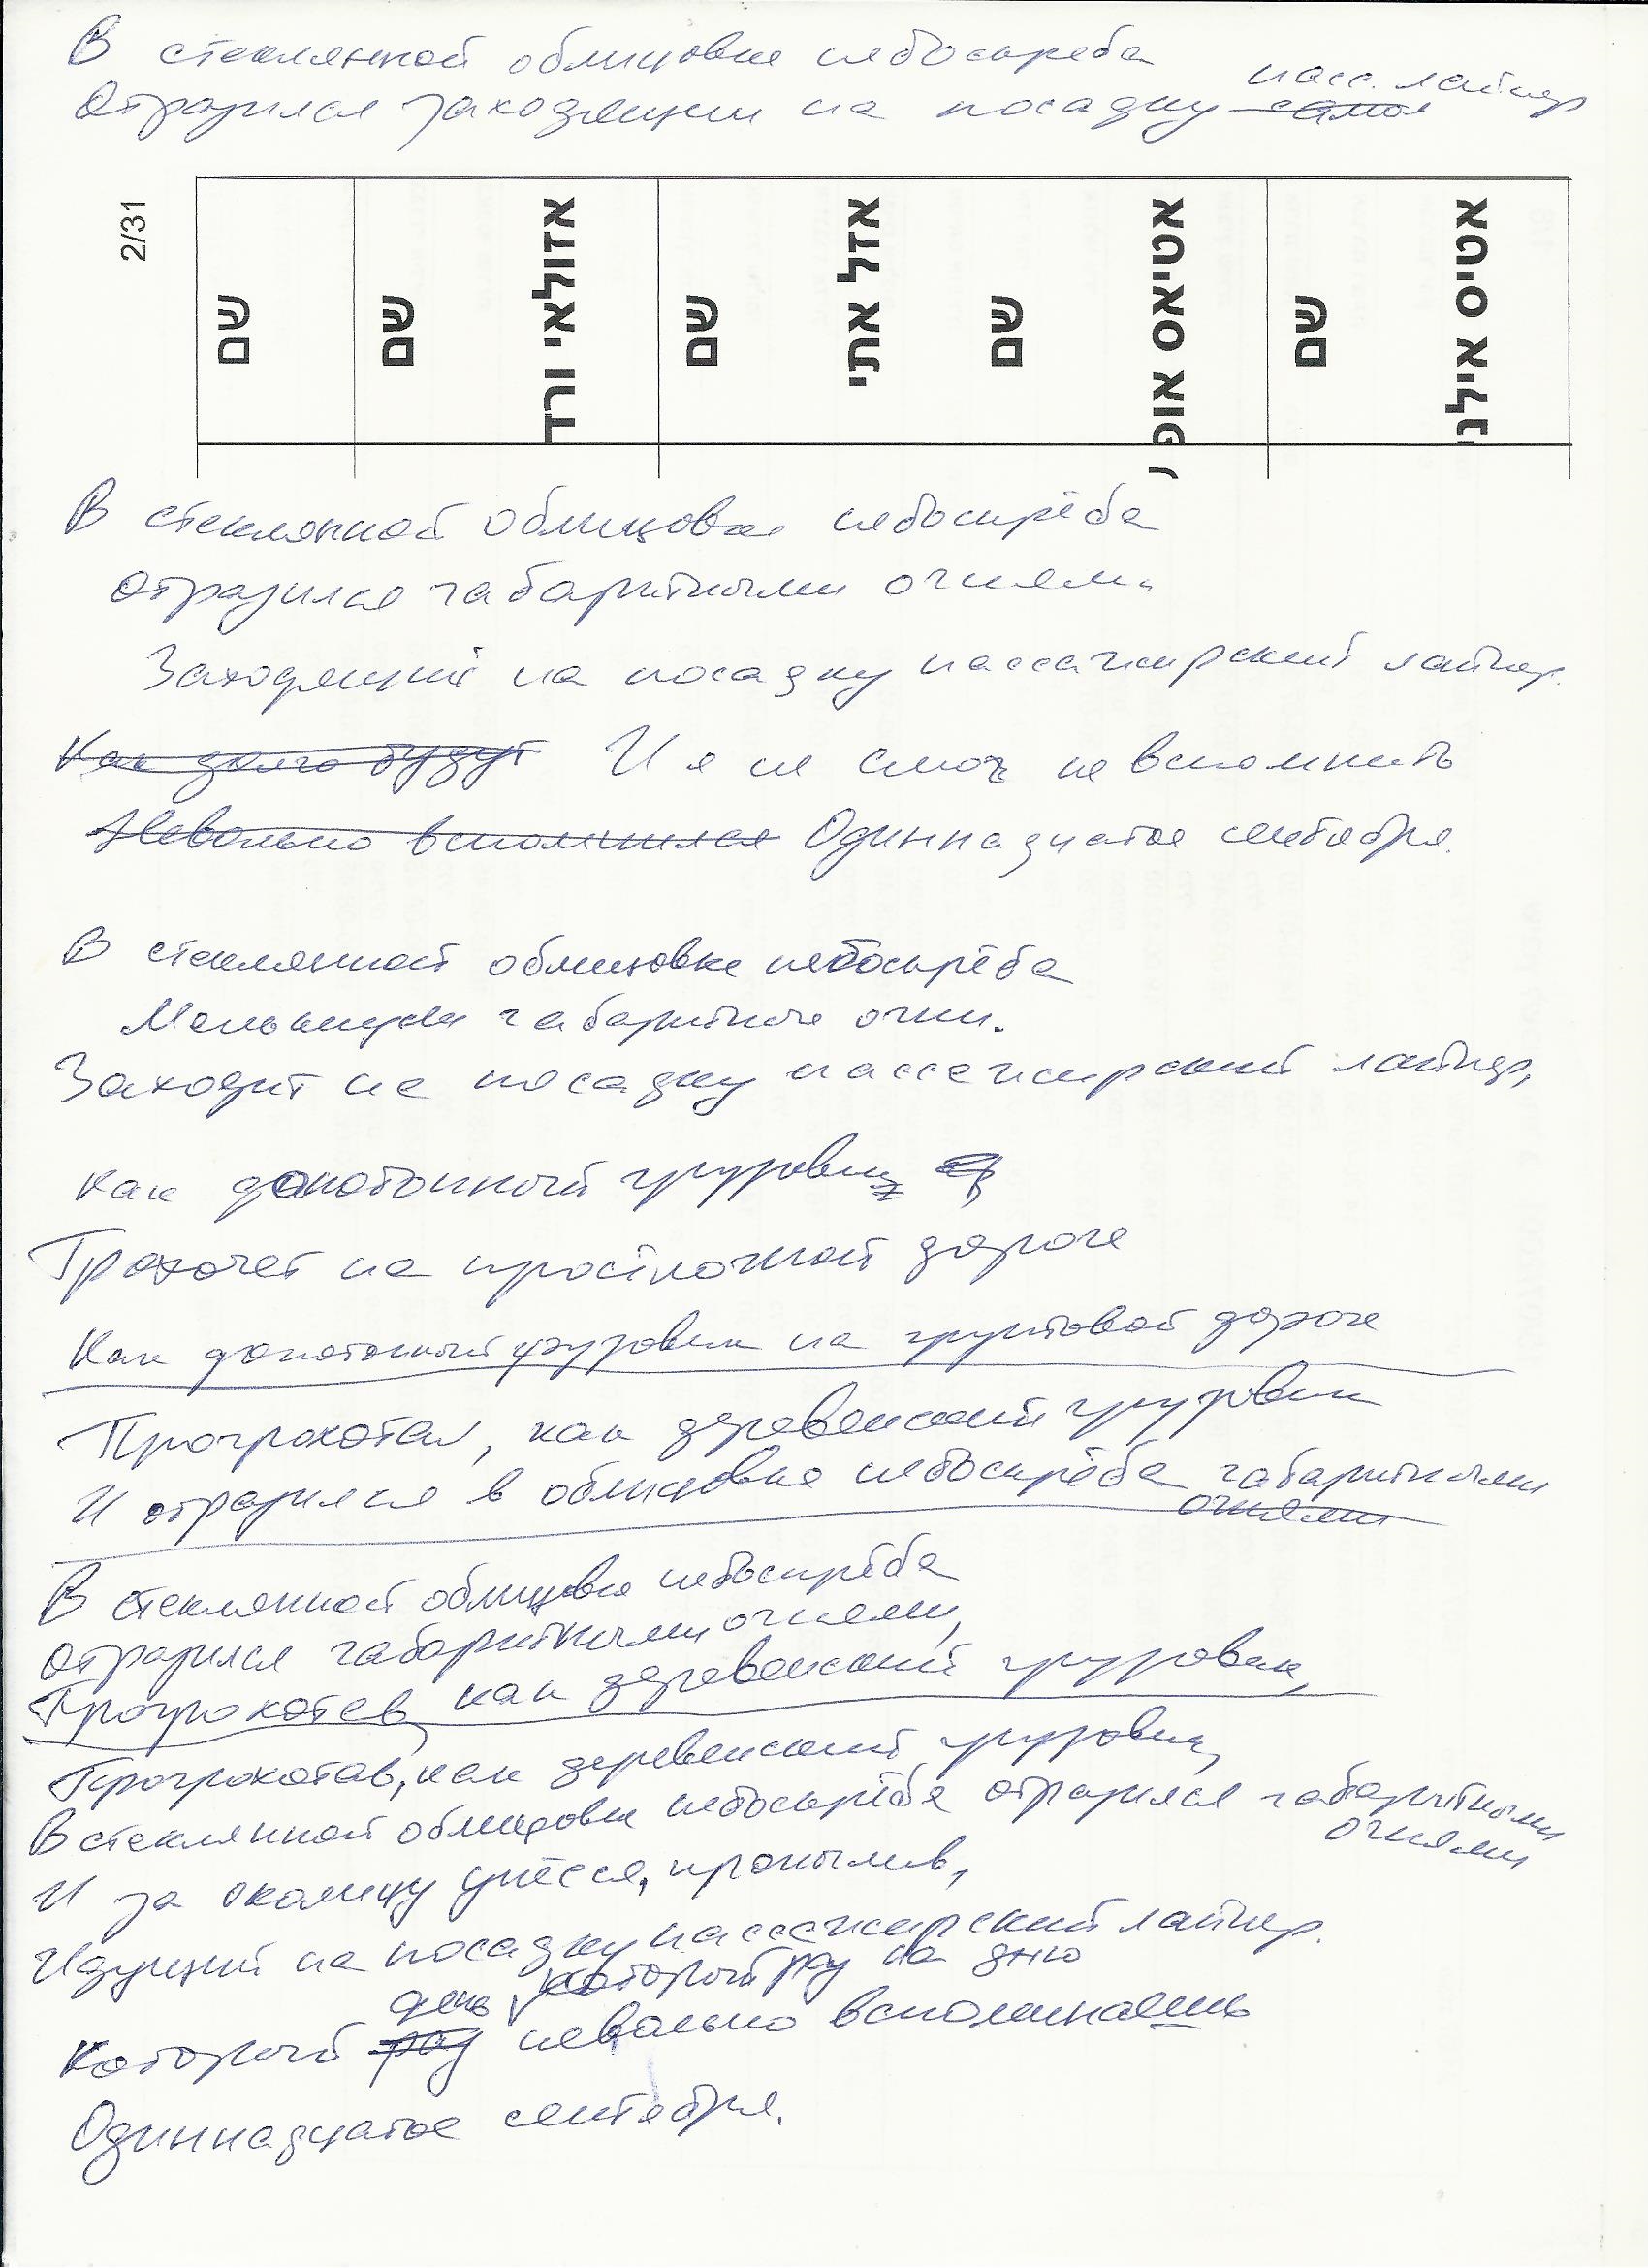 В стеклянной облицовке небоскреба
пасс. лайнер
Отразился заходящий на посадку само
2/31
שם
שם
אזולאי ורד
שם
אזל אתי
שם
אטיאס אופ
שם
אטיס אילנ
В стеклянной облицовке небоскрёба
отразился габаритными огнями
Заходящий на посадку пассажирский лайнер.
Как долго будут И я не смог не вспомнить
Невольно вспомнился Одиннадцатое сентября.
В стеклянной облицовке небоскрёба
Мельнули габаритные огни.
Заходит на посадку пассажирский лайнер,
Как допотопный грузовик
Грохочет на просёлочной дороге
Как допотопный грузовик на грунтовой дороге
Прогрохотал, как деревенский грузовик
И отразился в облицовке небоскрёба габаритными
огнями
В стеклянной облицовке небоскрёба
отразился габаритными огнями,
Прогрохотав, как деревенский грузовик,
Прогрохотав, как деревенский грузовик,
В стеклянной облицовке небоскрёба отразился габаритными
огнями
И за околицу унёсся, пропылив,
Идущий на посадку пассажирский лайнер.
день который раз на дню
Который раз невольно вспоминаешь
Одиннадцатое сентября.